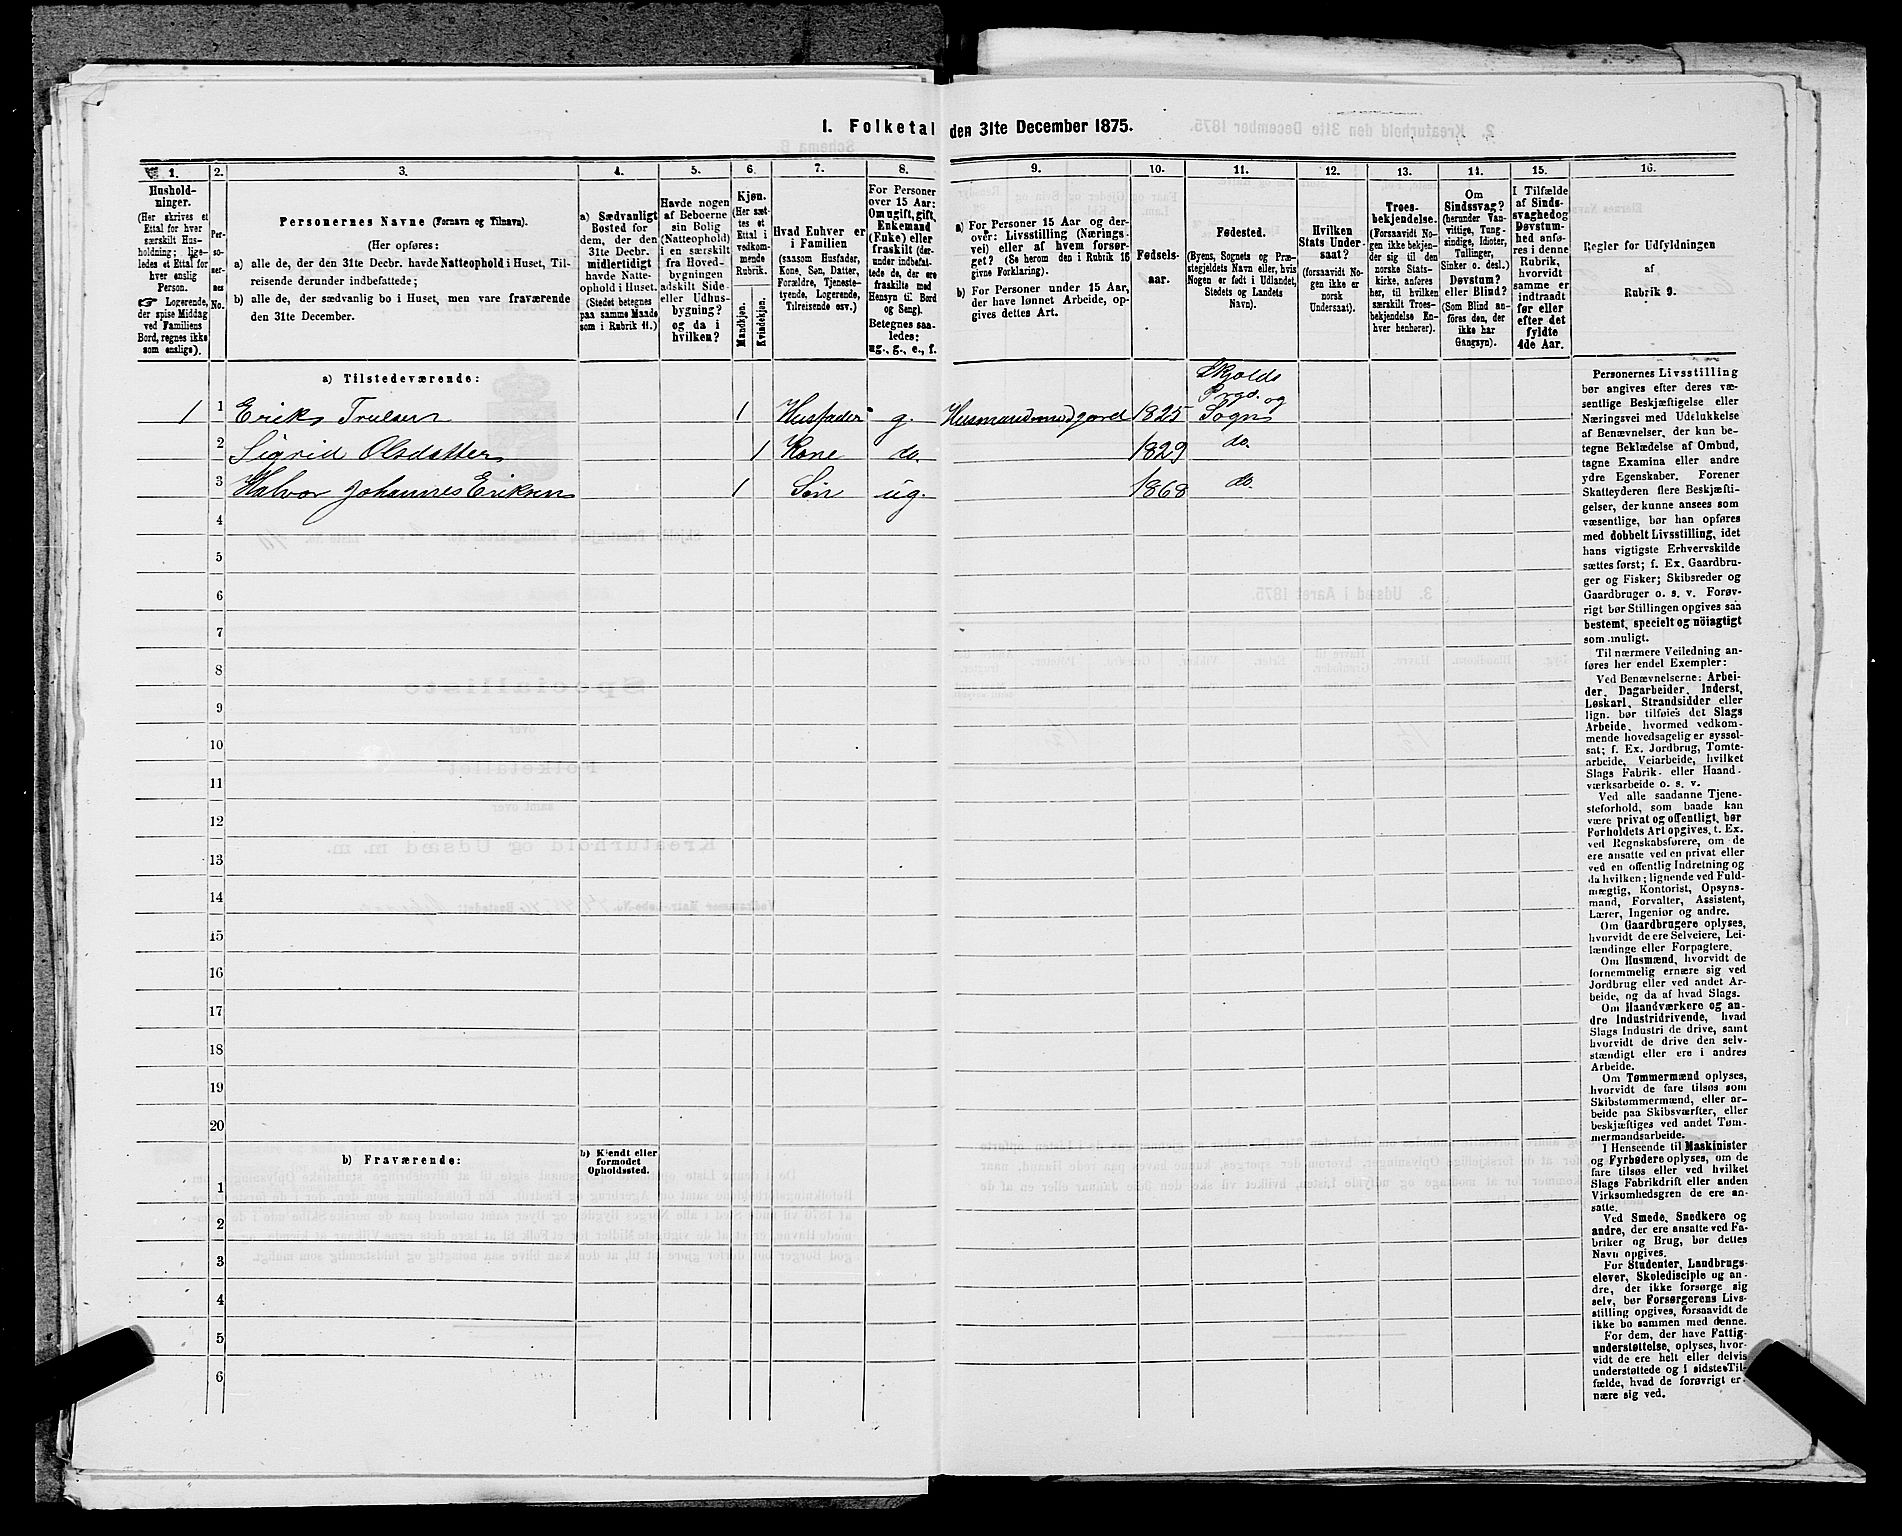 1. Folketal den 31te December 1875.
1.
2.
3.
4.
5.
6.
7.
8.
9.
10.
11.
12.
13.
14.
15.
16.
Hushold-
ninger.
(Her skrives et
Ettal for hver
særskilt Hus-
holdning; lige-
ledes et Ettal for
hver enslig
Person.
☞ Logerende,
der spise Middag
ved Familiens
Bord, regnes ikke
som enslige).
Per-
so-
ner-
nes
No.
Personernes Navne (Fornavn og Tilnavn).
(Her opføres:
a) alle de, der den 31te Decbr. havde Natteophold i Huset, Til-
reisende derunder indbefattede;
b) alle de, der sædvanlig bo i Huset, men vare fraværende
den 31te December.
a) Sædvanligt
Bosted for
dem, der den
31te Decbr.
midlertidigt
havde Natte-
ophold i Huset.
(Stedet betegnes
paa samme Maade
som i Rubrik 11.)
Havde nogen
af Beboerne
sin Bolig
(Natteophold)
i en særskilt
fra Hoved-
bygningen
adskilt Side-
eller Udhus-
bygning?
og da i
hvilken?
Kjøn.
(Her sæt-
tes et
Ettal i
vedkom-
mende
Rubrik.
Mandkjøn.
Kvindekjøn.
Hvad Enhver er
i Familien
(saasom Husfader,
Kone, Søn, Datter,
Forældre, Tjeneste-
tyende, Logerende,
Tilreisende osv.)
For Personer
over 15 Aar:
Om ugift, gift,
Enkemand
(Enke) eller
fraskilt (der-
under indbefat-
tede de, der ere
fraskilte med
Hensyn til Bord
og Seng).
Betegnes saa-
ledes:
ug., g., e., f.
a) For Personer 15 Aar og der-
over: Livsstilling (Nærings-
vei) eller af hvem forsør-
get? (Se herom den i Rubrik 16
givne Forklaring).
b) For Personer under 15 Aar,
der have lønnet Arbeide, op-
gives dettes Art.
Fødsels-
aar.
Fødested.
(Byens, Sognets og Præ-
stegjeldets Navn eller, hvis
Nogen er født i Udlandet,
Stedets og Landets
Navn).
Hvilken
Stats Under-
saat?
(forsaavidt No-
gen ikke er
norsk
Undersaat).
Troes-
bekjendelse.
(Forsaavidt No-
gen ikke bekjen-
der sig til den
norske Stats-
kirke, anføres
her, til hvilken
særskilt Troes-
bekjendelse En-
hver henhører).
Om
Sindssvag?
(herunder Van-
vittige, Tung-
sindige, Idioter,
Tullinger,
Sinker o. desl.)
Døvstum?
eller Blind?
(Som Blind an-
føres den, der
ikke har
Gangsyn).
I Tilfælde
af Sinds-
svaghed og
Døvstum-
hed anfø-
res i denne
Rubrik,
hvorvidt
samme er
indtraadt
før eller
efter det
fyldte
4de Aar.
Regler for Udfyldningen
af
Rubrik 9.
a) Tilstedeværende:
Skjolds
Prgd. og
1 1 Eriks Trulsen 1 Husfader g. Husmand med jord 1825 Sogn
2 Sigrid Olsdatter 1 Kone do. 1829 do.
3 Halvor Johannes Eriksen 1 Søn ug. 1868 do.
4
5
6
7
8
9
10
11
12
13
14
15
16
17
18
19
20
b) Fraværende:
b) Kjendt eller
formodet
Opholdssted.
1
2
3
4
5
6
Personernes Livsstilling
bør angives efter deres væ-
sentlige Beskjæftigelse eller
Næringsvei med Udelukkelse
af Benævnelser, der kun be-
tegne Beklædelse af Ombud,
tagne Examina eller andre
ydre Egenskaber. Forener
Skatteyderen flere Beskjæfti-
gelser, der kunne ansees som
væsentlige, bør han opføres
med dobbelt Livsstilling, idet
hans vigtigste Erhvervskilde
sættes først; f. Ex. Gaardbru-
ger og Fisker; Skibsreder og
Gaardbruger o. s. v. Forøv-
rigt bør Stillingen opgives saa
bestemt, specielt og nöiagtigt
som muligt.
Til nærmere Veiledning an-
føres her endel Exempler:
Ved Benævnelserne: Arbei-
der, Dagarbeider, Inderst,
Løskarl, Strandsidder eller
lign. bør tilføies det Slags
Arbeide, hvormed vedkom-
mende hovedsagelig er syssel-
sat; f. Ex. Jordbrug, Tomte-
arbeide, Veiarbeide, hvilket
Slags Fabrik- eller Haand-
værksarbeide o. s. v.
Ved alle saadanne Tjene-
steforhold, som baade kan
være privat og offentligt, bør
Forholdets Art opgives, t. Ex.
ved Regnskabsførere, om de
ere ansatte ved en privat eller
ved en offentlig Indretning og
da hvilken; lignende ved Fuld-
mægtig, Kontorist, Opsyns-
mand, Forvalter, Assistent,
Lærer, Ingeniør og andre.
Om Gaardbrugere oplyses,
hvorvidt de ere Selveiere, Lei-
lændinge eller Forpagtere.
Om Husmænd, hvorvidt de
fornemmelig ernære sig ved
Jordbrug eller ved andet Ar-
beide, og da af hvad Slags.
Om Haandværkere og an-
dre Industridrivende, hvad
Slags Industri de drive, samt
hvorvidt de drive den selv-
stændigt eller ere i andres
Arbeide.
Om Tømmermænd oplyses,
hvorvidt de fare tilsøs som
Skibstømmermænd, eller ar-
beide paa Skibsværfter, eller
beskjæftiges ved andet Tøm-
mermandsarbeide.
I Henseende til Maskinister
og Fyrbødere oplyses, om de
fare tilsøs eller ved hvilket
Slags Fabrikdrift eller anden
Virksomhedsgren de ere an-
satte.
Ved Smede, Snedkere og
andre, der ere ansatte ved Fa-
briker og Brug, bør dettes
Navn opgives.
For Studenter, Landbrugs-
elever, Skoledisciple og an-
dre, der ikke forsørge sig
selv, bør Forsørgerens Livs-
stilling opgives, forsaavidt de
ikke bo sammen med denne.
For dem, der have Fattig-
understøttelse, oplyses, hvor-
vidt de ere helt eller delvis
understøttede og i sidste Til-
fælde, hvad de forøvrigt er-
nære sig ved.